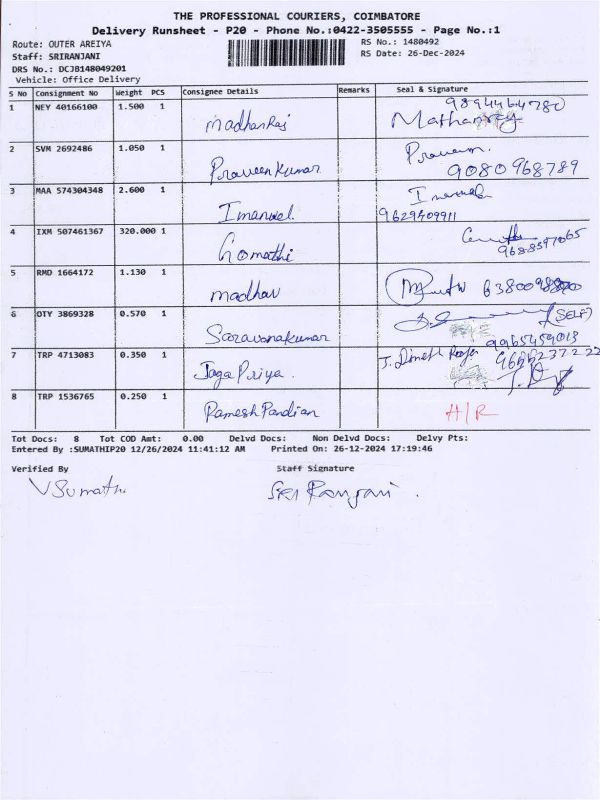 THE PROFESSIONAL COURIERS, COIMBATORE
Delivery Runsheet - P20 - Phone No.:0422-3505555 - Page No.:1
Route: OUTER AREIYA RS No.: 1480492
Staff: SRIRANJANI RS Date: 26-Dec-2024
DRS No.: DCJB148049201
Vehicle: Office Delivery
S No Consignment No Weight PCS Consignee Details Remarks Seal & Signature
1 NEY 40166100 1.500 1 madhanRaj
2 SVM 2692486 1.050 1 Praveen Kumar Praveen
9080968789
3 MAA 574304348 2.600 1 Imanuel
9629409911
4 IXM 507461367 320.000 1 Gomathi
9688597065
5 RMD 1664172 1.130 1 madhav
6 OTY 3869328 0.570 1 Saravanakumar (SELF)
9965459013
7 TRP 4713083 0.350 1 JagaPriya.
8 TRP 1536765 0.250 1 Ramesh Pandian H/R
Tot Docs: 8 Tot COD Amt: 0.00 Delvd Docs: Non Delvd Docs: Delvy Pts:
Entered By :SUMATHIP20 12/26/2024 11:41:12 AM Printed On: 26-12-2024 17:19:46
Verified By Staff Signature
V Sumathi Sri Ranjani.